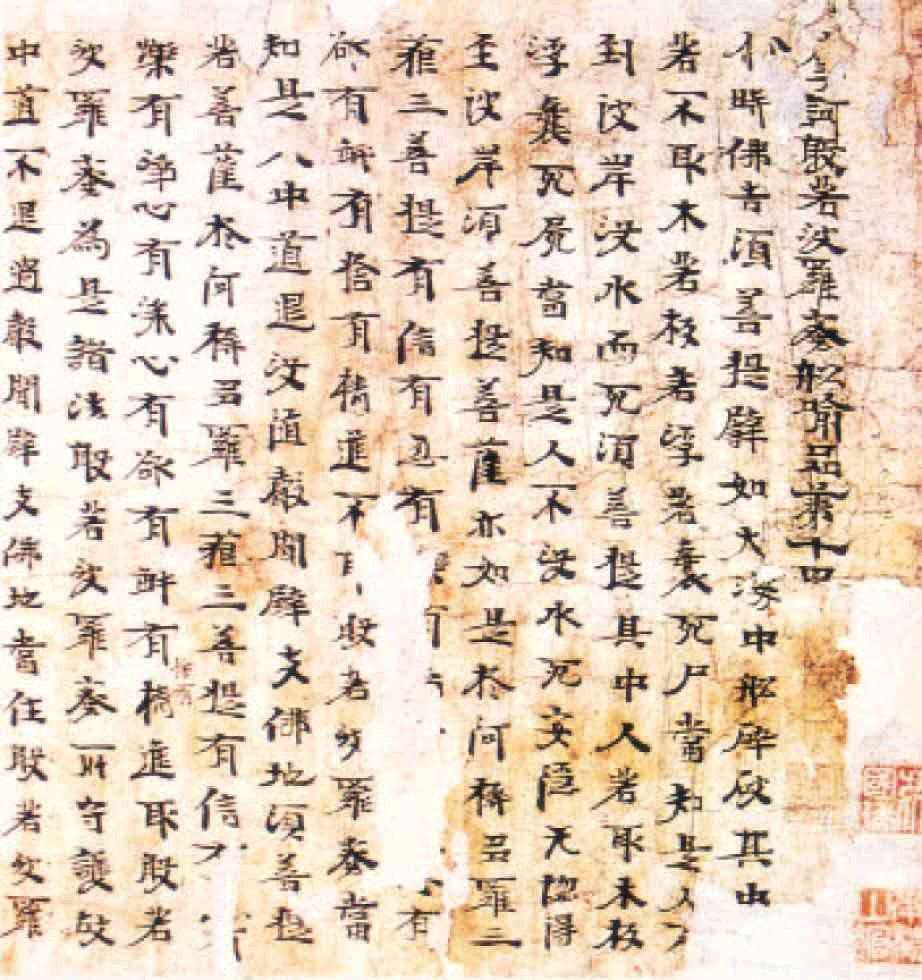 訶般若波羅蜜船喻品第十四
尒時佛告須菩提辟如大海中船卒破其中
者不取木若板若浮若囊死尸當知是人
到彼岸没水而死須菩提其中人若取木板
浮囊死屍當知是人不没水死安隱无得
至彼岸須菩提菩薩亦如是於阿耨多羅三
藐三菩提有信有忍有有
欲有解有捨有精進不般若波羅蜜當
知是人中道退没墮聲聞辟支佛地須菩提
若菩薩於阿耨多羅三藐三菩提有信
樂有淨心有深心有欲有解有精進取般若
波羅蜜為是諸法般若波羅蜜所守護故
中道不退過聲聞辟支佛地當住般若波羅